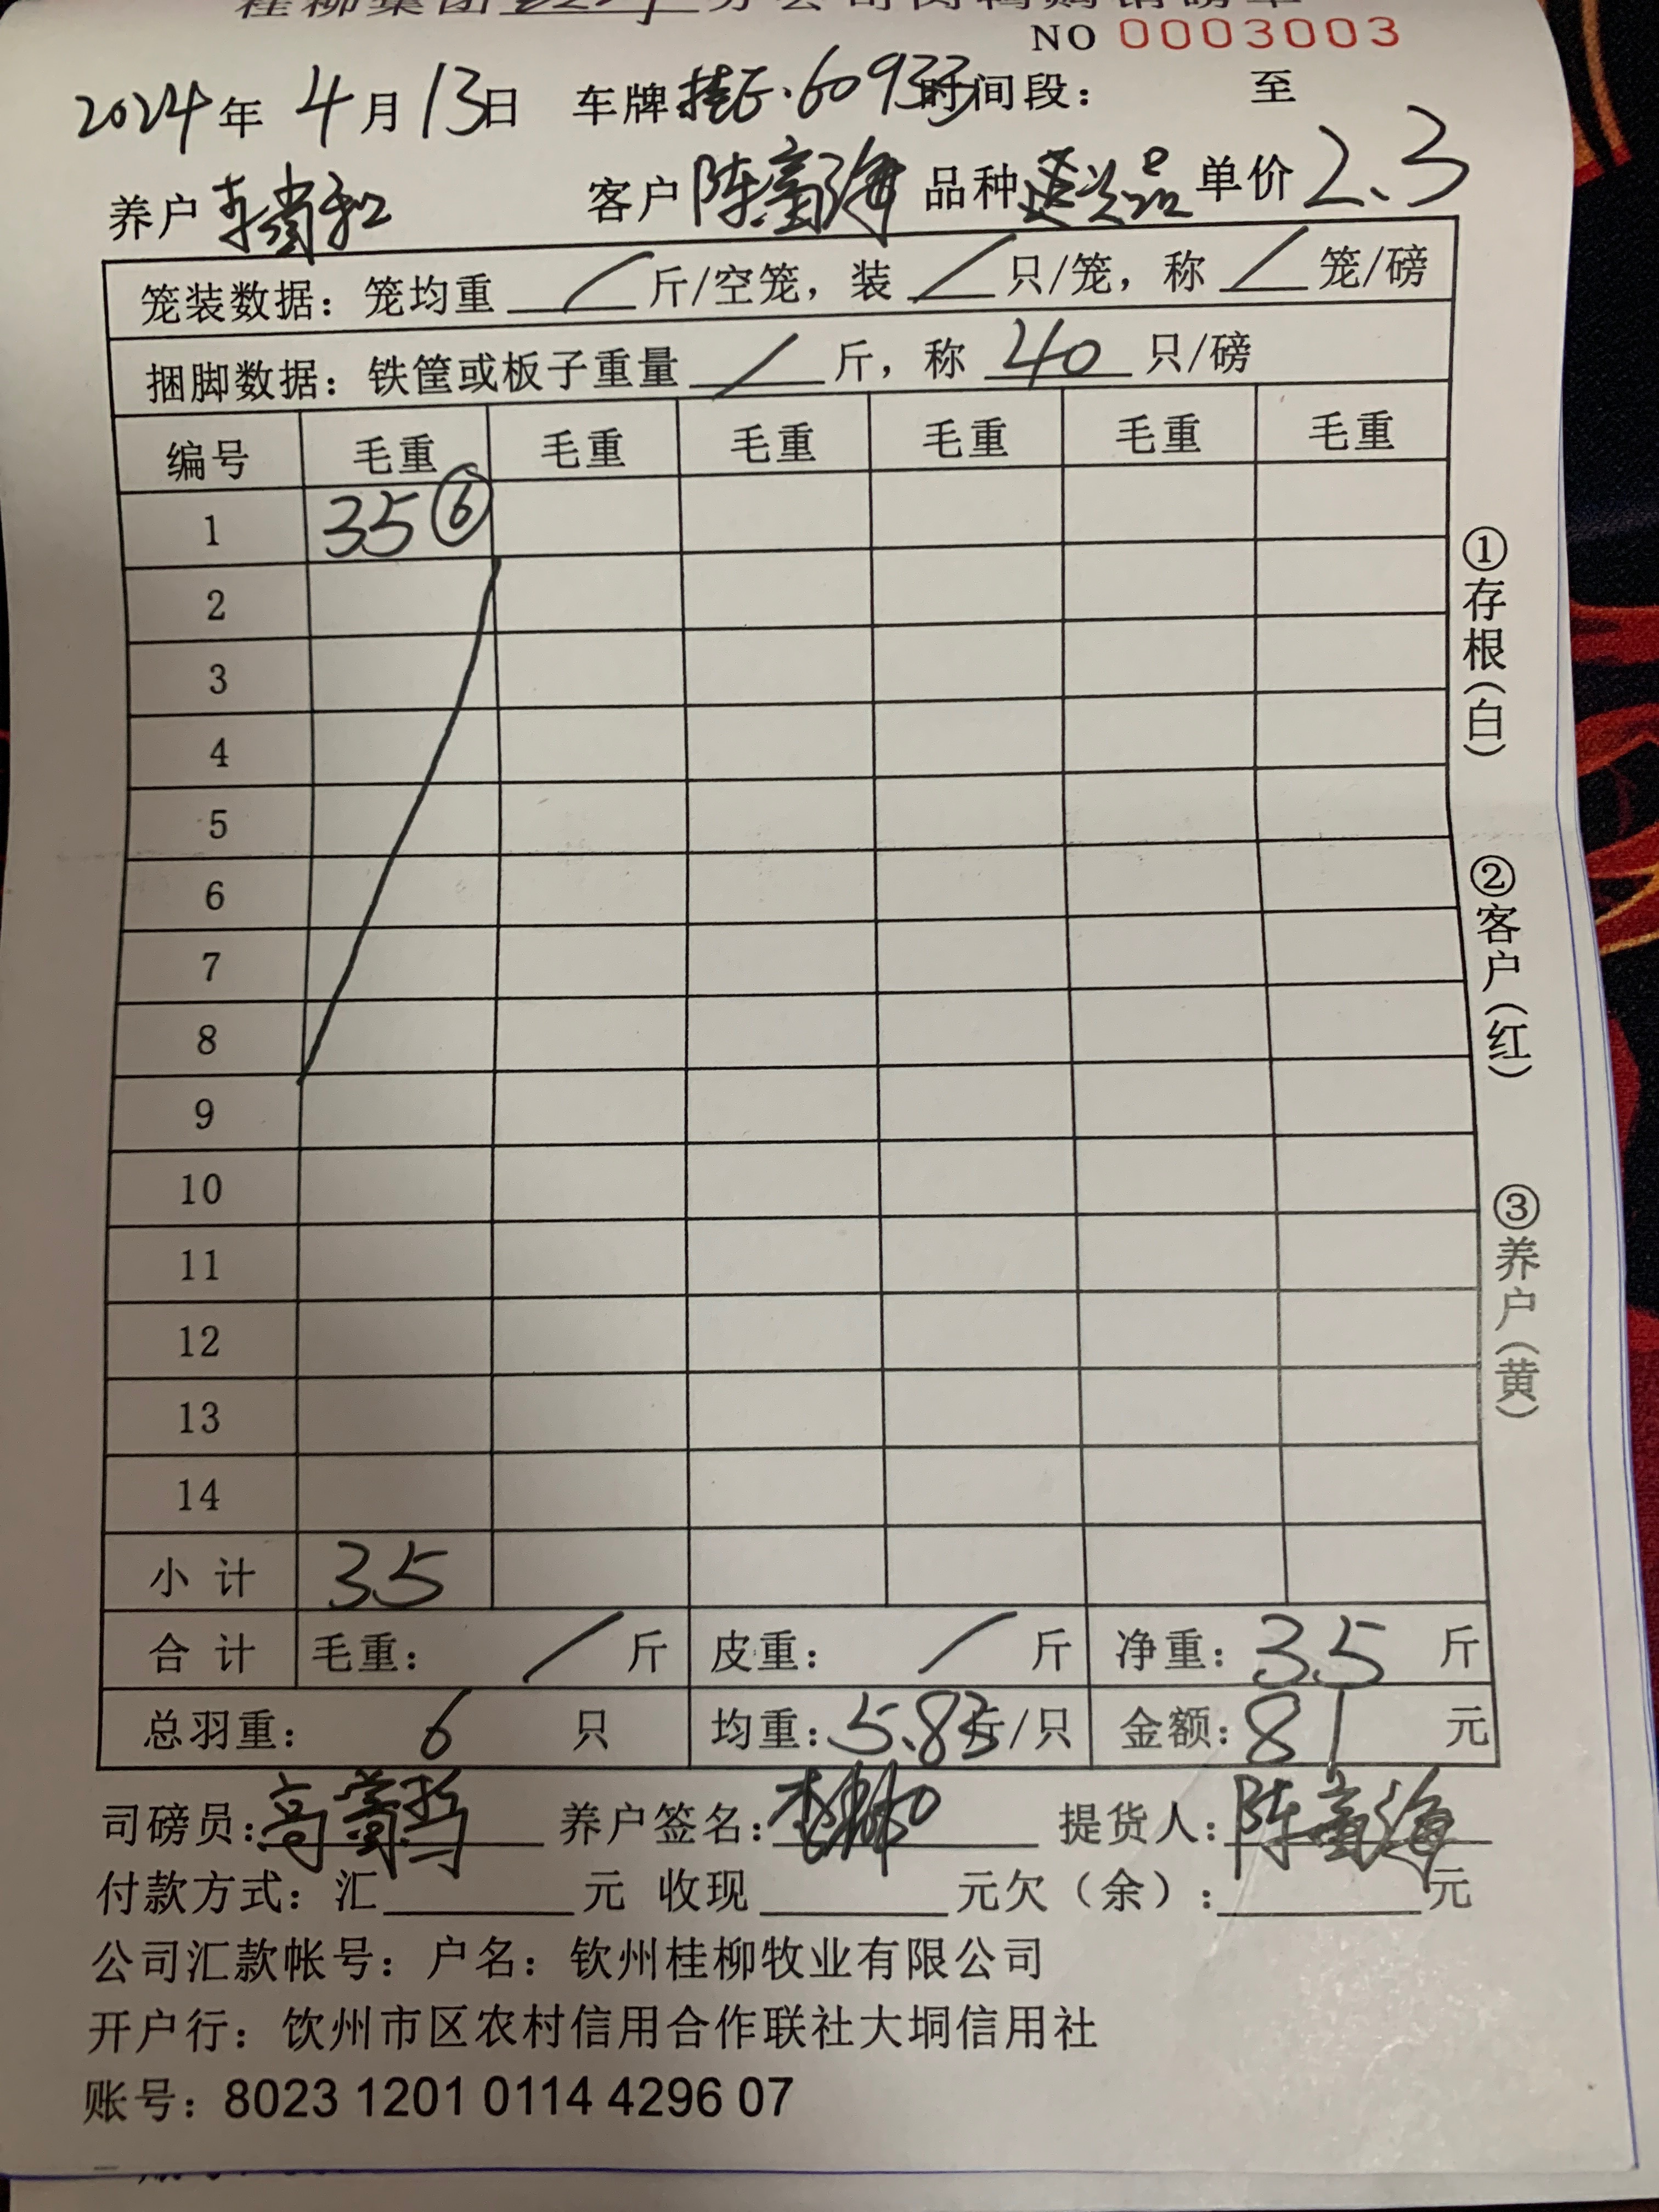 桂柳集团 分公司肉鸭购销磅单
NO 0003003
2024年 4月13日 车牌桂E·60933时间段: 至
养户 客户陈富海 品种 单价2.3
笼装数据:笼均重 / 斤/空笼,装 / 只/笼,称 / 笼/磅
捆脚数据:铁筐或板子重量 / 斤,称 40 只/磅
编号 毛重 毛重 毛重 毛重 毛重 毛重
1 35 ⑥
2
3
4
5
6
7
8
9
10
11
12
13
14
小 计 35
合 计 毛重: / 斤 皮重: / 斤 净重:35 斤
总羽重: 6 只 均重:5.83斤/只 金额:81 元
司磅员: 养户签名: 提货人:陈富海
付款方式:汇 元 收现 元欠(余): 元
公司汇款帐号:户名:钦州桂柳牧业有限公司
开户行:饮州市区农村信用合作联社大垌信用社
账号:8023 1201 0114 4296 07
①存根(白)
②客户(红)
③养户(黄)